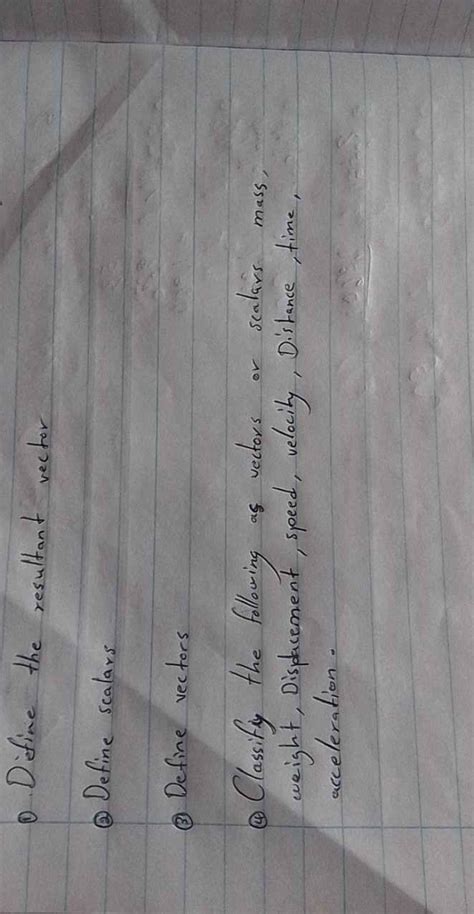 ① Define the resultant vector
② Define scalars
③ Define vectors
④ Classify the following as vectors or scalars mass,
weight, Displacement, speed, velocity, Distance, time,
acceleration.